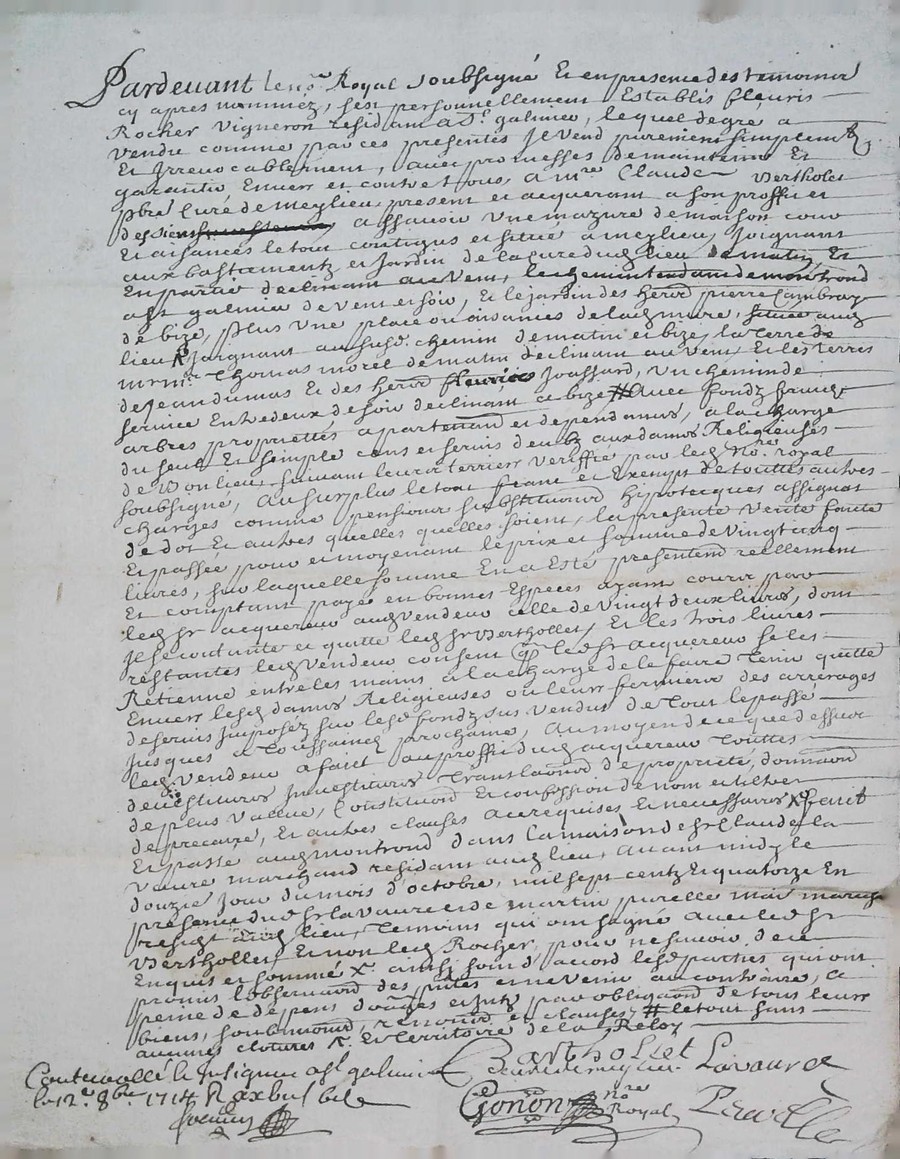 Pardevant le no.re Royal soubsigné Et en presence des temoins
cy apres nomméz, s'est personnellement Establis fleuris
Rocher Vigneron residant a St. galmier, lequel de gré a
vendu comme par ces presentes Je vend purement simplement
Et Irrevocablement, avec promesses de maintenir Et
garantir Envers et contre tous, a mre Claude Bertholet
pbre Curé de meylieu present et acquerant a son proffit et
des siens a sçavoir une mazure de maison
Et aisances le tout contigus et situé a meylieu, Joignant
aux bastiments et Jardin de la cure dud lieu de matin, Et
En partie declinant au vent, le chemin tendant de montrond
a St galmier de vent et soir, Et le Jardin des herd pierre Cambray
de bize, plus une place ou aisances de lad mazure, situés aud
lieu Joignant au susd. chemin de matin et bize, la terre de
mr me. Thomas morel de matin declinant au vent, Et les terres
de Jean dumas Et des herd fleuries Joassard, un chemin de
service Entredeux de soir declinant a bize # avec fondz
arbres proprietés apartenances et dependances, a la charge
du seul Et simple cens et servis deub aux dames Religieuses
de Bonlieu suivant leurs terriers veriffié par led No.re royal
soubsigné, au surplus le tout franc et Exempt de touttes autres
charges comme pensions substitutions hypotecques assignat
de dot Et autres quelles quelles soient, la presente vente faitte
Et passée pour et moyenant le prix et somme de vingt cinq
livres, sur laquelle somme En a Esté presentement reellement
Et comptant payé en bonnes Especes ayant cours par
led sr acquereur aud vendeur celle de vingt deux livres, dont
Il se contante et quitte led sr Bertholet, Et les trois livres
restantes led vendeur consent que led sr acquereur se les
Retienne entre les mains a la charge de le faire tenir quitte
Envers lesd dames Religieuses ou leurs fermiers des arrerages
de servis Imposéz sur lesd fondz sus vendus de tout le passé
Jusques a Toussaincts prochaine, au moyen de ce que dessus
led vendeur a fait au proffit dud acquereur touttes
devestitures Investitures translations de proprieté, donnation
de plus value, Constitution Et confession de nom et tiltre
de precaire, Et autres clauses a ce requises Et necessaires x fait
Et passé aud montrond dans la maison de sr Claude la
vaure marchand residant aud lieu, avant midy le
douzie Jour du mois d'octobre, mil sept centz Et quatorze En
presence dud sr lavaure et de martin purelle
resid aud lieu, temoins qui ont signé avec led sr
Bertholet, Et non led Rocher, pour ne sçavoir de ce
Enquis et sommé x. ainsy sont d'accord lesd parties qui ont
promis l'observation des pntes et ne venir au contraire, a
peine de depens domages et Intz par obligation de tous leurs
biens, soubmissions, renontions et clauses # le tout sans
aucunes clotures x. Et territoire de la Reloy
Bartholliet Lavaure
Curé de meylieu
Controllé Et Insigné a St galmier
le 12.e 8bre 1714
Gonon no.re Royal Purelle